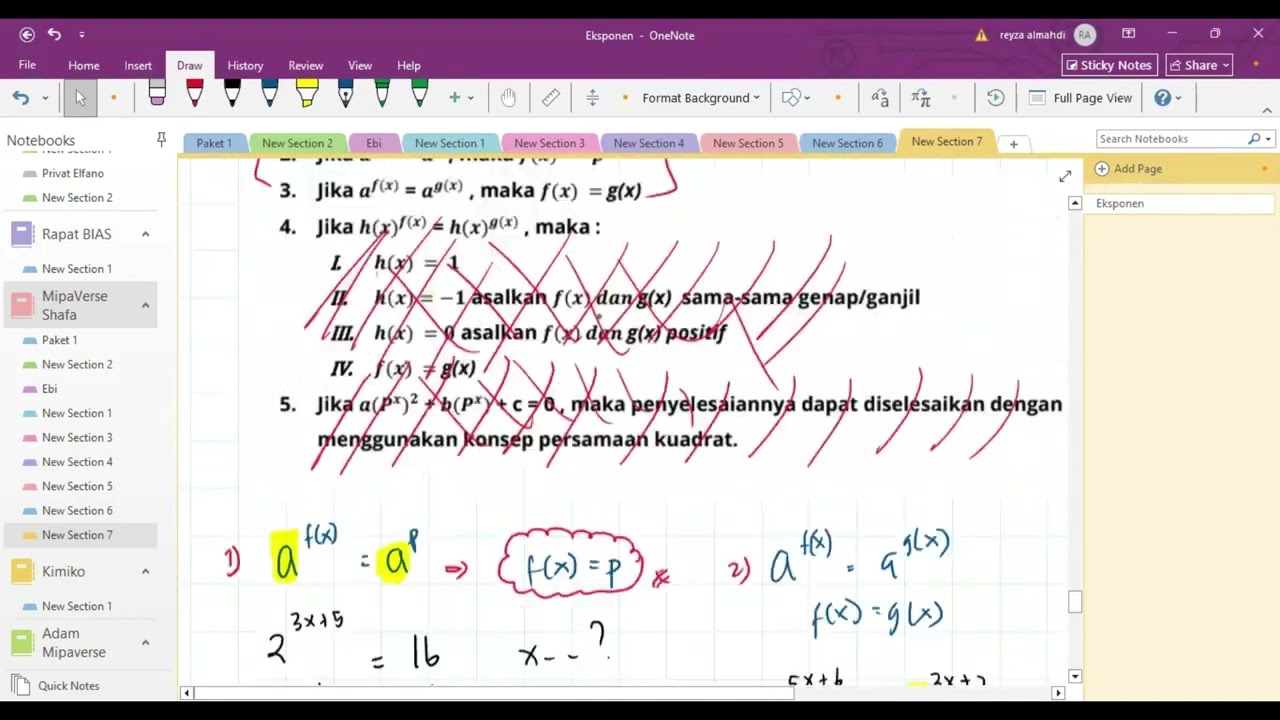 Eksponen - OneNote
reyza almahdi
RA
File
Home
Insert
Draw
History
Review
View
Help
Sticky Notes
Share
Format Background
Full Page View
Notebooks
Paket 1
New Section 2
Ebi
New Section 1
New Section 3
New Section 4
New Section 5
New Section 6
New Section 7
Search Notebooks
Privat Elfano
New Section 2
Rapat BIAS
New Section 1
MipaVerse
Shafa
Paket 1
New Section 2
Ebi
New Section 1
New Section 3
New Section 4
New Section 5
New Section 6
New Section 7
Kimiko
New Section 1
Adam
Mipaverse
Quick Notes
Add Page
Eksponen
3. Jika a^f(x) = a^g(x) , maka f(x) = g(x)
4. Jika h(x)^f(x) = h(x)^g(x) , maka :
I. h(x) = 1
II. h(x) = −1 asalkan f(x) dan g(x) sama-sama genap/ganjil
III. h(x) = 0 asalkan f(x) dan g(x) positif
IV. f(x) = g(x)
5. Jika a(P^x)^2 + b(P^x) + c = 0 , maka penyelesaiannya dapat diselesaikan dengan
menggunakan konsep persamaan kuadrat.
1) a^f(x) = a^p ⇒ f(x) = p *
2^3x+5 = 16 x - - ?
2) a^f(x) = a^g(x)
f(x) = g(x)